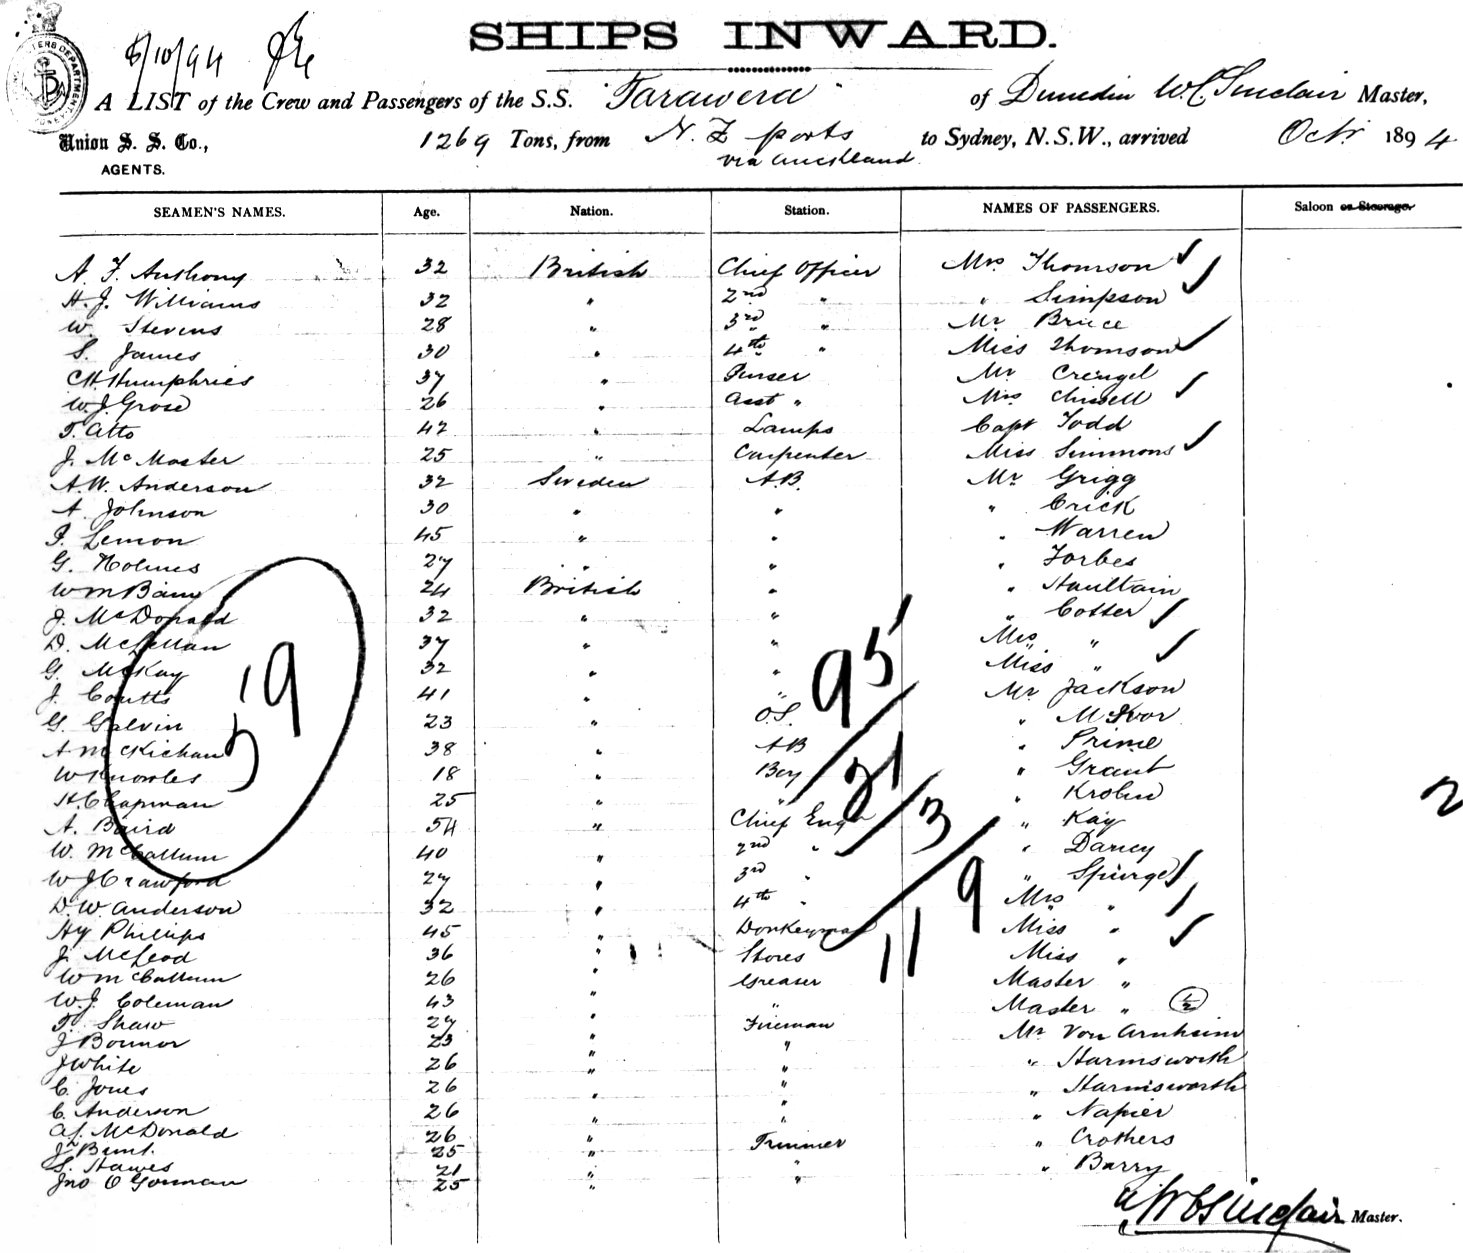 SHIPS INWARD.
8/10/94
A LIST of the Crew and Passengers of the S.S. "Tarawera" of Dunedin W. C. Sinclair Master,
Union S. S. Co., 1269 Tons, from N. Z ports to Sydney, N.S.W., arrived Octr. 1894
via Auckland
AGENTS.
SEAMEN'S NAMES. Age. Nation. Station. NAMES OF PASSENGERS. Saloon or Steerage.
A. F. Anthony 32 British Chief Officer Mrs Thomson
H. J. Williams 32 " 2nd " " Simpson
W. Stevens 28 " 3rd " Mr Bruce
S. James 30 " 4th " Miss Thomson
C H Humphries 37 " Purser Mr
W. J. Grose 26 " Asst " Mrs Chisell
T. Atto 42 " Lamps Capt Todd
J. McMaster 25 " Carpenter Miss Simmons
A. W. Anderson 32 Sweden A.B. Mr Grigg
A. Johnson 30 " " " Crick
Lemon 45 " " " Warren
G. Holmes 27 " " " Forbes
Wm Bain 24 British " " Haultain
J. McDonald 32 " " " Cotter
D. McLellan 37 " " Mrs "
G. McKay 32 " " Miss "
J. Coutts 41 " " Mr Jackson
G. Galvin 23 " O.S. " McIvor
A McKichan 38 " AB " Prime
W Knowles 18 " Boy " Grant
H. C Capman 25 " " "
A. Baird 54 " Chief Engr " Kay
W. McCallum 40 " 2nd " " Darcy
W J Crawford 27 " 3rd " " Spurge
D. W. Anderson 32 " 4th " Mrs "
Hy Phillips 45 " Donkeyman Miss "
J. McLeod 36 " Stores Miss "
W McCallum 26 " Greaser Master "
W. J. Coleman 43 " " Master " 1/2
T. Shaw 27 " Fireman Mr Von Arnheim
J Bonnor 23 " " " Harmsworth
J White 26 " " " Harmsworth
C. Jones 26 " " " Napier
C. Anderson 26 " " " Crothers
McDonald 26 " Trimmer " Barry
J. Bunt. 25 "
S. Hawes 21 " "
Jno O Gorman 25 "
59
95
21
3
9
11
2
W C Sinclair Master.